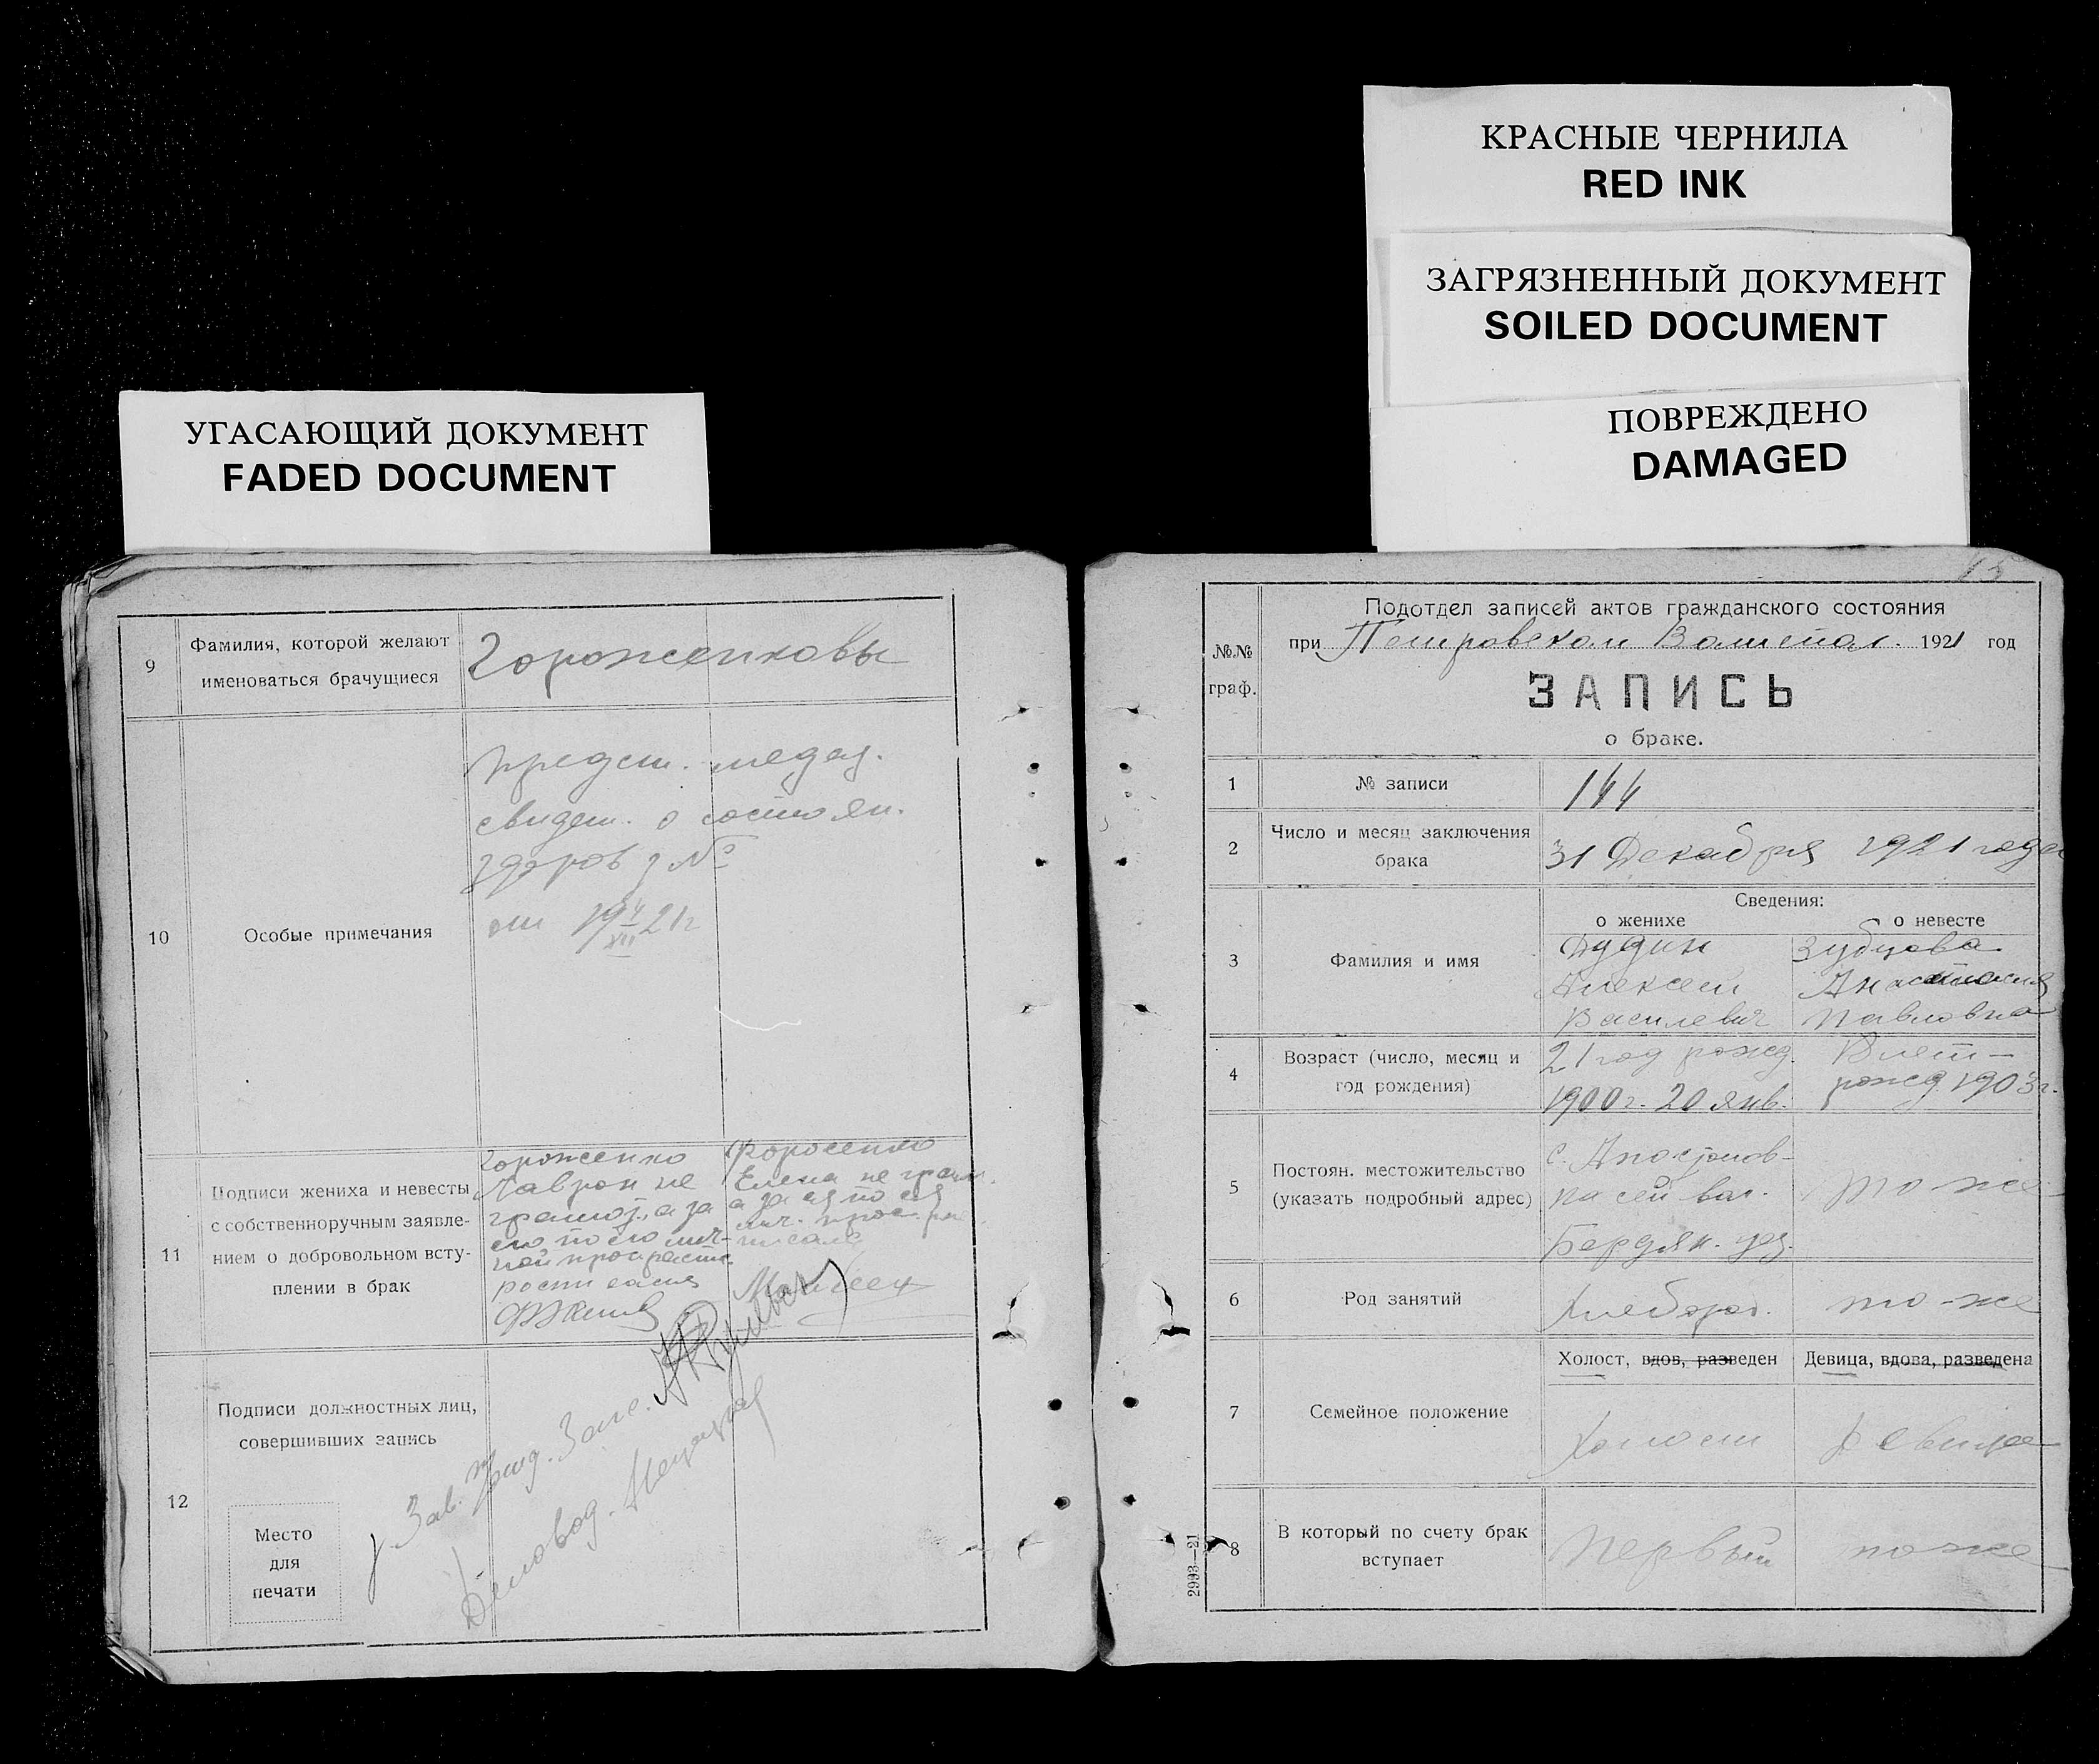 КРАСНЫЕ ЧЕРНИЛА
RED INK
ЗАГРЯЗНЕННЫЙ ДОКУМЕНТ
SOILED DOCUMENT
ПОВРЕЖДЕНО
DAMAGED
УГАСАЮЩИЙ ДОКУМЕНТ
FADED DOCUMENT
9
Фамилия, которой желают
именоваться брачущиеся
Гороженковы
10
Особые примечания
предст. медец.
свидет. о состоян.
здоров з №
от 19 4/XII 21г
11
Подписи жениха и невесты
с собственноручным заявле-
нием о добровольном всту-
плении в брак
Горожен
Гаврон не
грамот, а за
его по его лич-
ной
Елена не грам.
а за ея по ея
лич.
12
Подписи должностных лиц,
совершивших запись
Зав.
Деловод.
Место
для
печати
15
№№
граф.
Подотдел записей актов гражданского состояния
при Петровском 1921 год
ЗАПИСЬ
о браке.
1
№ записи
144
2
Число и месяц заключения
брака
31 Декабря 1921 года
Сведения:
о женихе
о невесте
3
Фамилия и имя
Дудин
Алексей
Василевич
Зубцова
Анастасия
Павловна
4
Возраст (число, месяц и
год рождения)
21 год рожд.
1900г. 20 янв.
лет-
рожд. 1903г.
5
Постоян. местожительство
(указать подробный адрес)
с.
вол.
Бердян. уез.
то же
6
Род занятий
Хлебороб.
то-же
7
Семейное положение
Холост, вдов, разведен
Девица, вдова, разведена
Холост
Девица
8
В который по счету брак
вступает
Первый
тоже
2993—21